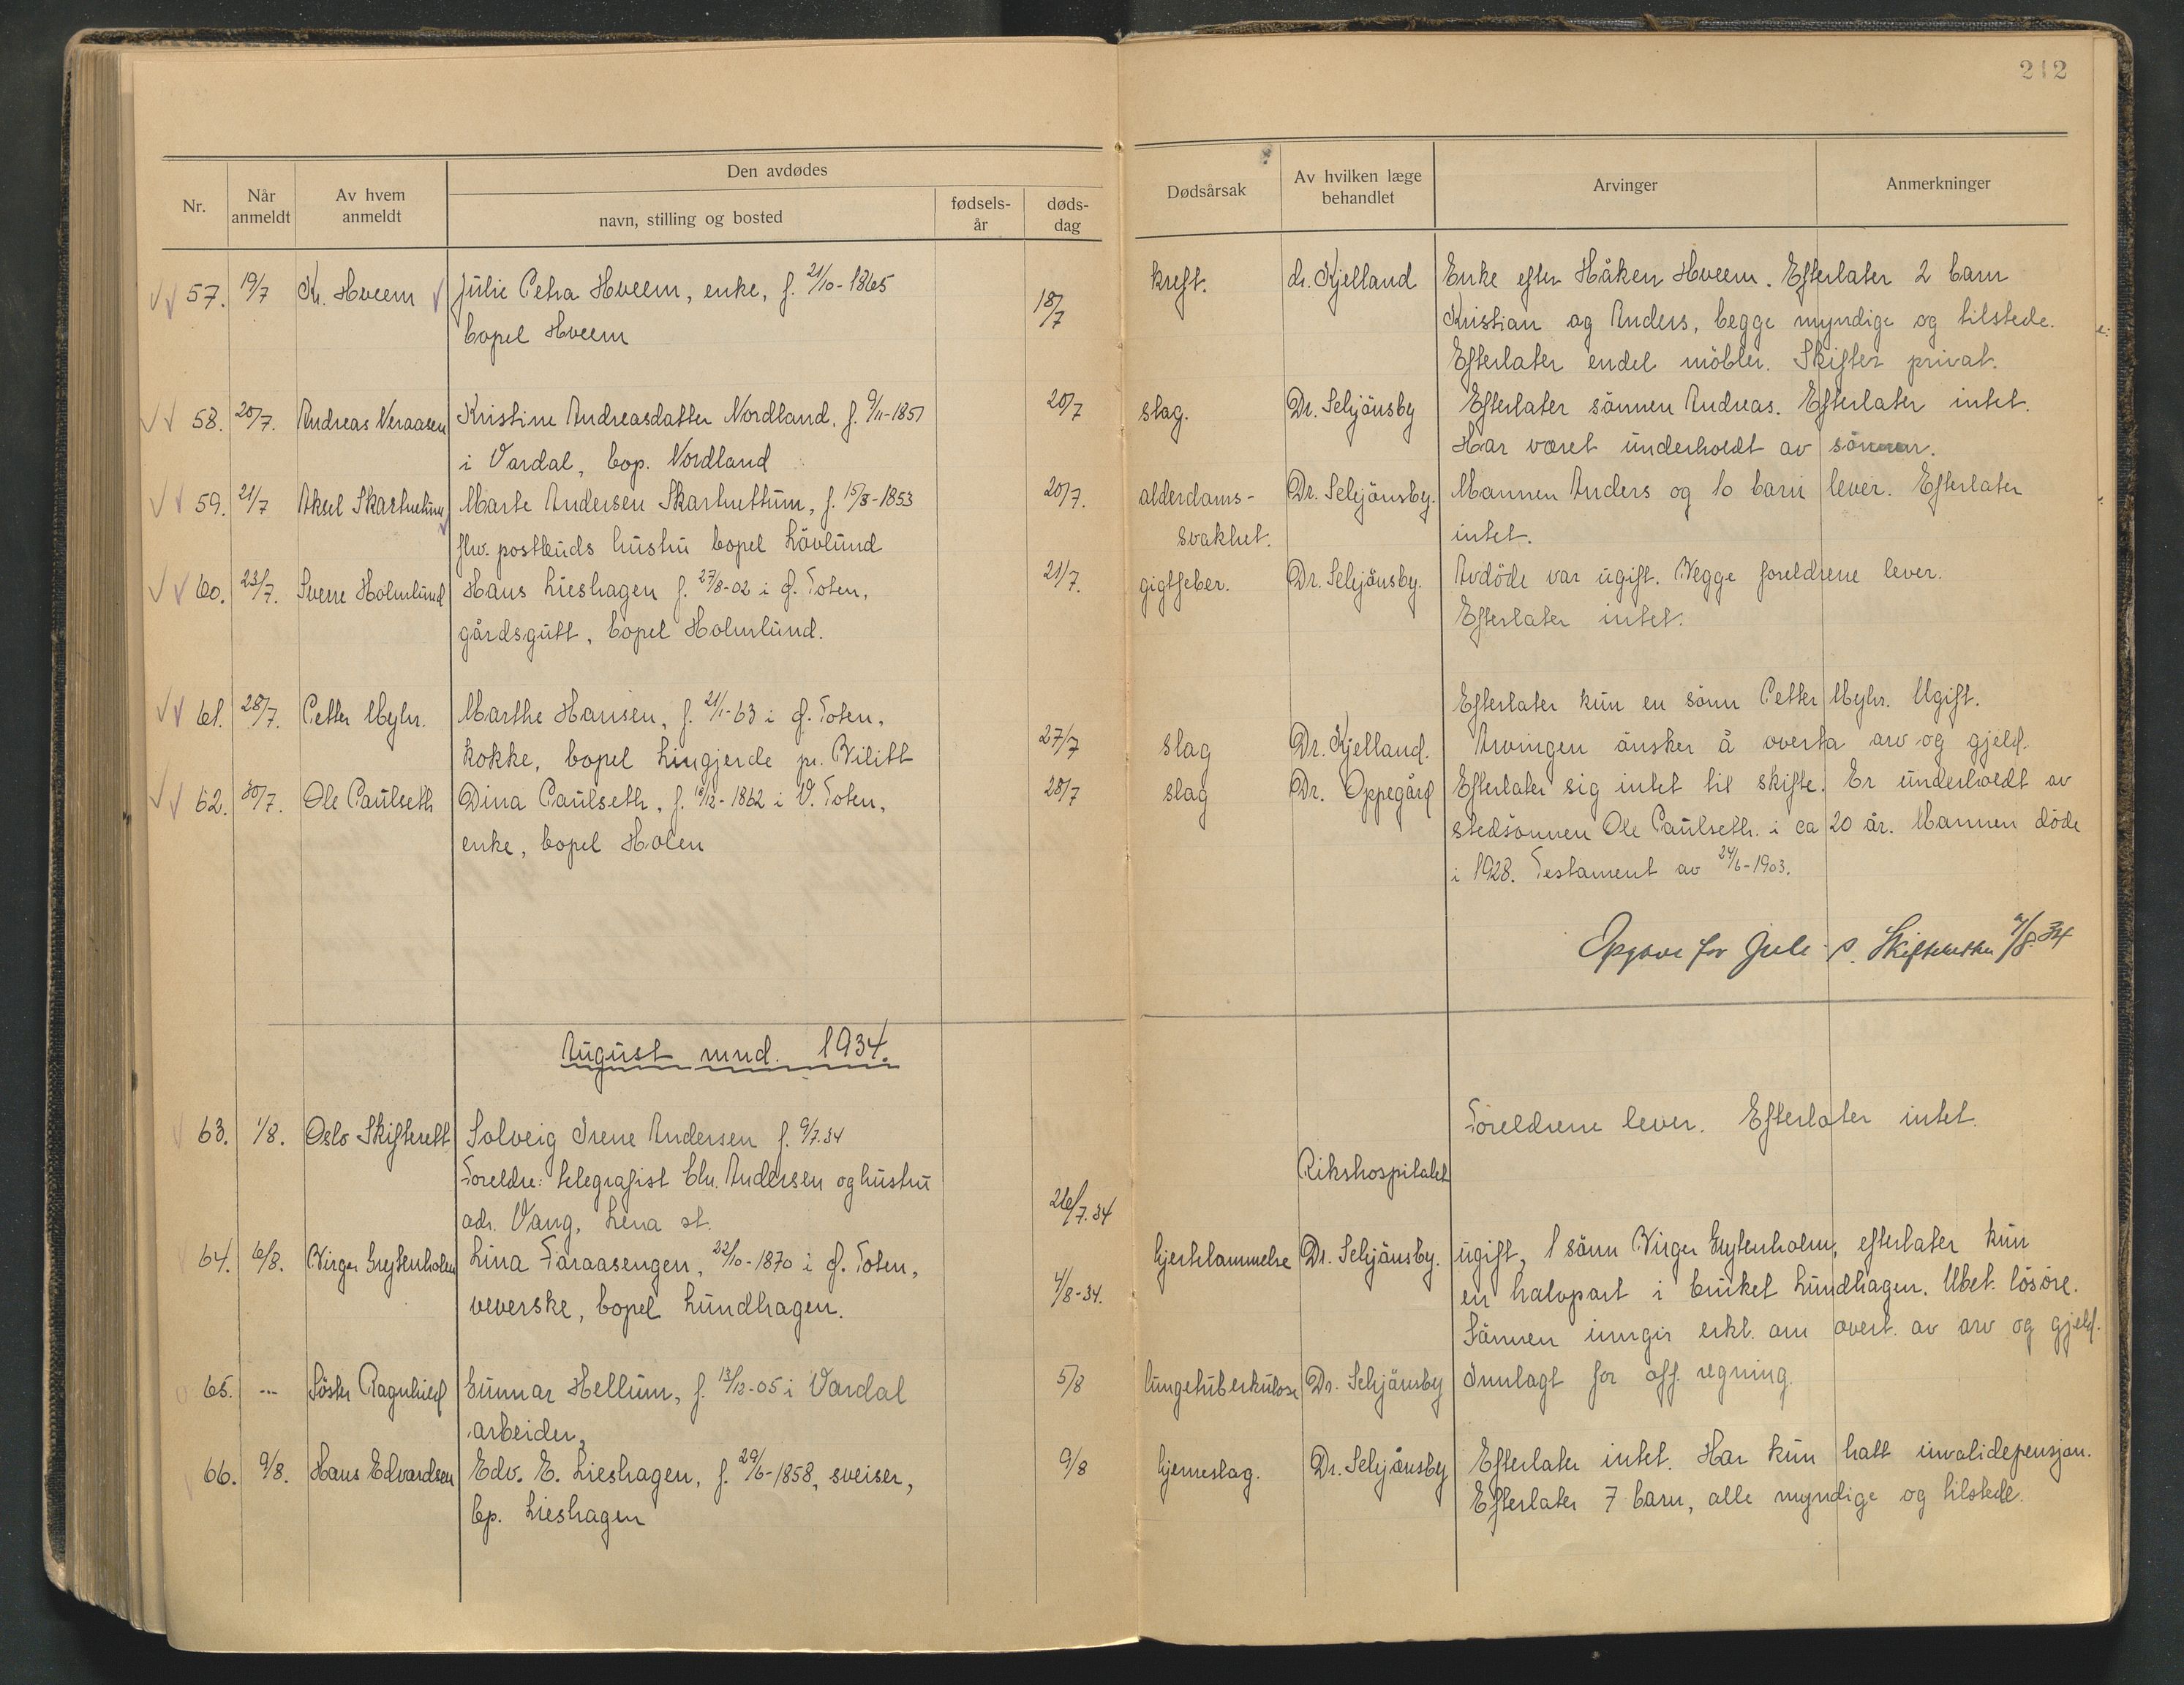 212
Nr.
Når anmeldt
Av hvem anmeldt
Den avdødes
navn, stilling og bosted
fødsels-år
døds-dag
Dødsårsak
Av hvilken læge behandlet
Arvinger
Anmerkninger
57. 19/7 Kr. Hveem Julie Petra Hveem, enke, f. 21/10-1865 18/7 kreft. dr. Kjelland Enke efter Håken Hveem. Efterlater 2 barn
bopel Hveem Kristian og Anders, begge myndige og tilstede.
Efterlater endel möbler. Skifter privat.
58. 20/7. Andreas Neraasen Kristine Andreasdatter Nordland, f. 9/11-1851 20/7 slag. Dr. Schjönsby Efterlater sönnen Andreas. Efterlater intet.
i Vardal, bop. Nordland Har været underholdt av sönnen.
59. 21/7 Aksel Skartnettum Marte Andersen Skartnettum, f. 15/8-1853 20/7. alderdoms- Dr. Schjönsby. Mannen Anders og 10 barn lever. Efterlater
flw. postbuds hustru bopel Lövlund svakhet. intet.
60. 23/7. Sverre Holmlund Hans Lieshagen f. 27/8-02 i Ø. Toten, 21/7. gigtfeber. Dr. Schjönsby. Avdöde var ugift. Begge foreldrene lever.
gårdsgutt, bopel Holmlund. Efterlater intet.
61. 28/7. Petter Myhr. Marthe Hansen, f. 21/1-63 i Ø. Toten, Efterlater kun en sönn Petter Myhr. Ugift.
kokke, bopel Lingjerde pr. Bilitt 27/7 slag Dr. Kjelland. Arvingen önsker å overta arv og gjeld.
62. 30/7. Ole Paulseth Dina Paulseth, f. 18/12-1862 i V. Toten, 28/7 slag Dr. Oppegård Efterlater sig intet til skifte. Er underholdt av
enke, bopel Holen stedsönnen Ole Paulseth. i ca 20 år. Mannen döde
i 1928. Testament av 24/6-1903.
Opgave for juli s. Skifteretten /8.34
August mnd. 1934.
63. 1/8. Oslo Skifterett Solveig Irene Andersen f. 9/7.34 Foreldrene lever. Efterlater intet.
Foreldre: telegrafist Chr. Andersen og hustru Rikshospitalet
adr. Vang, Lena st. 26/7.34
64. 6/8. Birger Grytenholm Lina Taraasengen, 22/10-1870 i Ø. Toten, hjertelammelse Dr. Schjönsby. ugift, 1 sönn Birger Grytenholm, efterlater kun
veverske, bopel Lundhagen. 4/8-34. en halvpart i bruket Lundhagen. Ubet. lösöre.
Sönnen inngir erkl. om overt. av arv og gjeld.
65. --- Söster Ragnhild Gunnar Hellum, f. 13/12-05 i Vardal 5/8 lungetuberkulose Dr. Schjönsby Innlagt for off. regning.
arbeider,
66. 9/8. Hans Edvardsen Edv. E. Lieshagen, f. 29/6-1858, sveiser, 9/8 hjerneslag. Dr. Schjönsby Efterlater intet. Har kun hatt invalidepensjon.
bp. Lieshagen Efterlater 7 barn, alle myndige og tilstede.